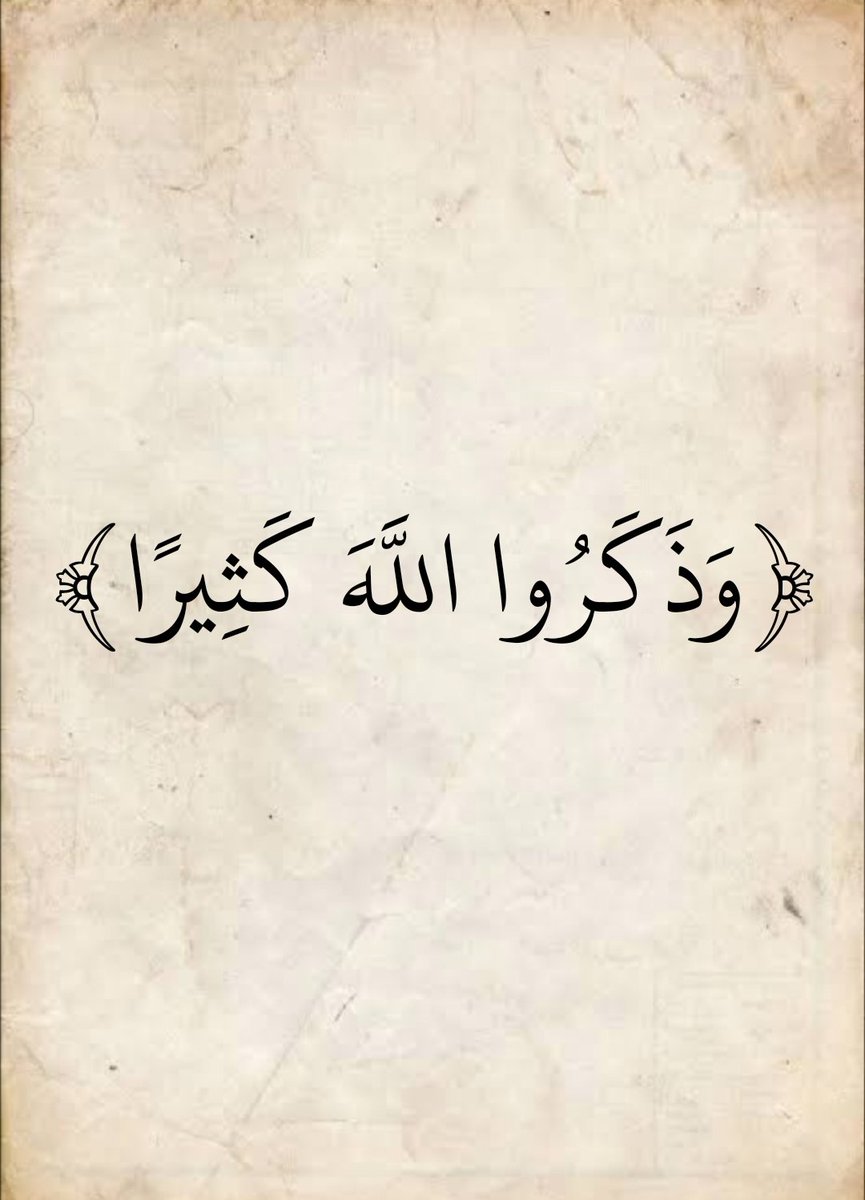 ﴿وَذَكَرُوا اللَّهَ كَثِيرًا﴾